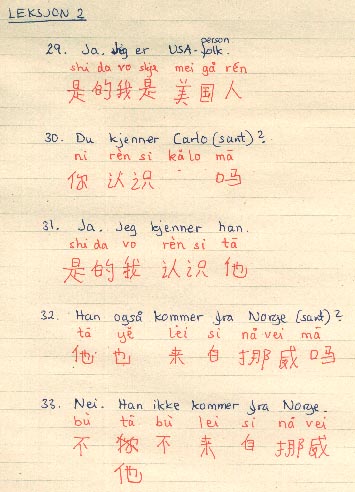 LEKSJON 2
29. Ja. Jeg er USA-folk.
person
shi da vo shja mei gå rén
是的我是 美国人
30. Du kjenner Carlo (sant)?
ni rèn si kålo mā
你 认识 吗
31. Ja. Jeg kjenner han.
shi da vo rèn si tā
是的我 认识 他
32. Han også kommer fra Norge (sant)?
tā yě lèi si nå vei mā
他 也 来 自 挪威 吗
33. Nei. Han ikke kommer fra Norge.
bù tā bù lei si nå vei
不 不 来 自 挪威
他